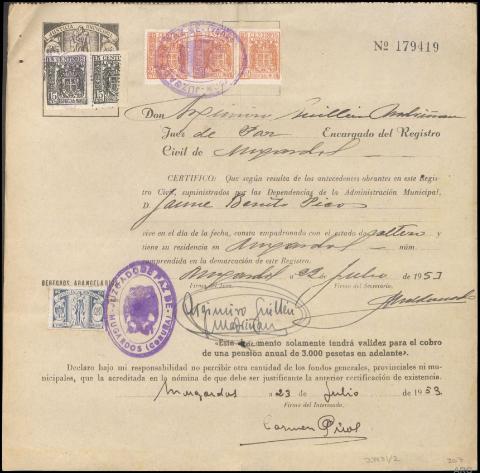 Nº 179419
Don Argimiro Guillén Madriñan
Juez de Paz Encargado del Registro
Civil de Mugardos
CERTIFICO: Que según resulta de los antecedentes obrantes en este Regis-
tro Civil, suministrados por las Dependencias de la Administración Municipal,
D. Jaime Benito Picos
vive en el día de la fecha, consta empadronado con el estado de soltero y
tiene su residencia en Mugardos núm.
comprendida en la demarcación de este Registro.
Mugardos a 22 Julio de 1953
Firma del Juez, Firma del Secretario,
JUZGADO DE PAZ DE
MUGARDOS (CORUÑA)
Argimiro Guillén
Madriñan
«Este documento solamente tendrá validez para el cobro
de una pensión anual de 3.000 pesetas en adelante».
Declaro bajo mi responsabilidad no percibir otra cantidad de los fondos generales, provinciales ni
municipales, que la acreditada en la nómina de que debe ser justificante la anterior certificación de existencia.
Mugardos a 23 de julio de 1953
Firma del Interesado,
Carmen Picos